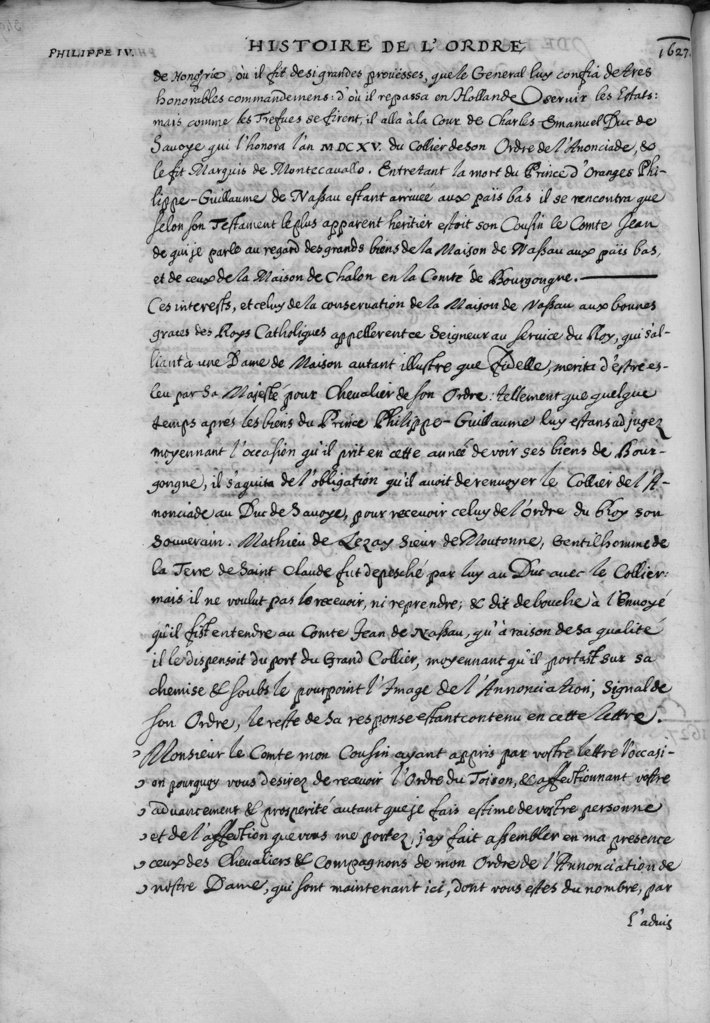 PHILIPPE IV.
HISTOIRE DE L'ORDRE
1627.
de Hongrie, où il fit de si grandes prouësses, que le General luy confia de tres
honorables commandemens: d'où il repassa en Hollande servir les Estats:
mais comme les Trefues se firent, il alla à la Cour de Charles Emanuel Duc de
Savoye qui l'honora l'an MDCXV. du Collier de son Ordre de l'Anonciade, &
le fit Marquis de Montecavallo. Entretant la mort du Prince d'Oranges Phi-
lippe-Guillaume de Nassau estant arrivée aux païs bas il se rencontra que
selon son Testament le plus apparent heritier estoit son Cousin le Comte Jean
de qui je parle au regard des grands biens de la Maison de Nassau aux païs bas,
et de ceux de la Maison de Chalon en la Comté de Bourgongne.
Ces interests, et celuy de la conservation de la Maison de Nassau aux bonnes
graces des Roys Catholiques appellerent ce Seigneur au service du Roy, qui s'al-
liant à une Dame de Maison autant illustre que fidelle, merita d'estre es-
leu par Sa Majesté pour Chevalier de son Ordre: tellement que quelque
temps apres les biens du Prince Philippe-Guillaume luy estans adjugez
moyennant l'occasion qu'il prit en cette année de voir ses biens de Bour-
gongne, il s'aquita de l'obligation qu'il avoit de renvoyer le Collier de l'A-
nonciade au Duc de Savoye, pour recevoir celuy de l'Ordre du Roy son
Souverain. Mathieu de Lezay Sieur de Moutonne, Gentilhomme de
la Terre de Saint Claude fut depesché par luy au Duc avec le Collier:
mais il ne voulut pas le recevoir, ni reprendre; & dit de bouche à l'Envoyé
qu'il fist entendre au Comte Jean de Nassau, qu'à raison de sa qualité
il le dispensoit du port du Grand Collier, moyennant qu'il portast sur sa
chemise & soubs le pourpoint l'Image de l'Annonciation, Signal de
son Ordre, le reste de sa response estant contenu en cette lettre.
Monsieur le Comte mon Cousin ayant appris par vostre lettre l'occasi-
on pourquoy vous desirez de recevoir l'Ordre du Toison, & affectionnant vostre
advancement & prosperité autant que je fais estime de vostre personne
et de l'affection que vous me portez, j'ay fait assembler en ma presence
ceux des Chevaliers & Compagnons de mon Ordre de l'Annonciation de
nostre Dame, qui sont maintenant ici, dont vous estes du nombre, par
l'advis